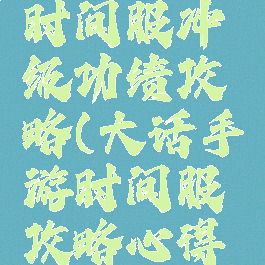 时间服冲
级功绩攻
略(大话手
游时间服
攻略心得